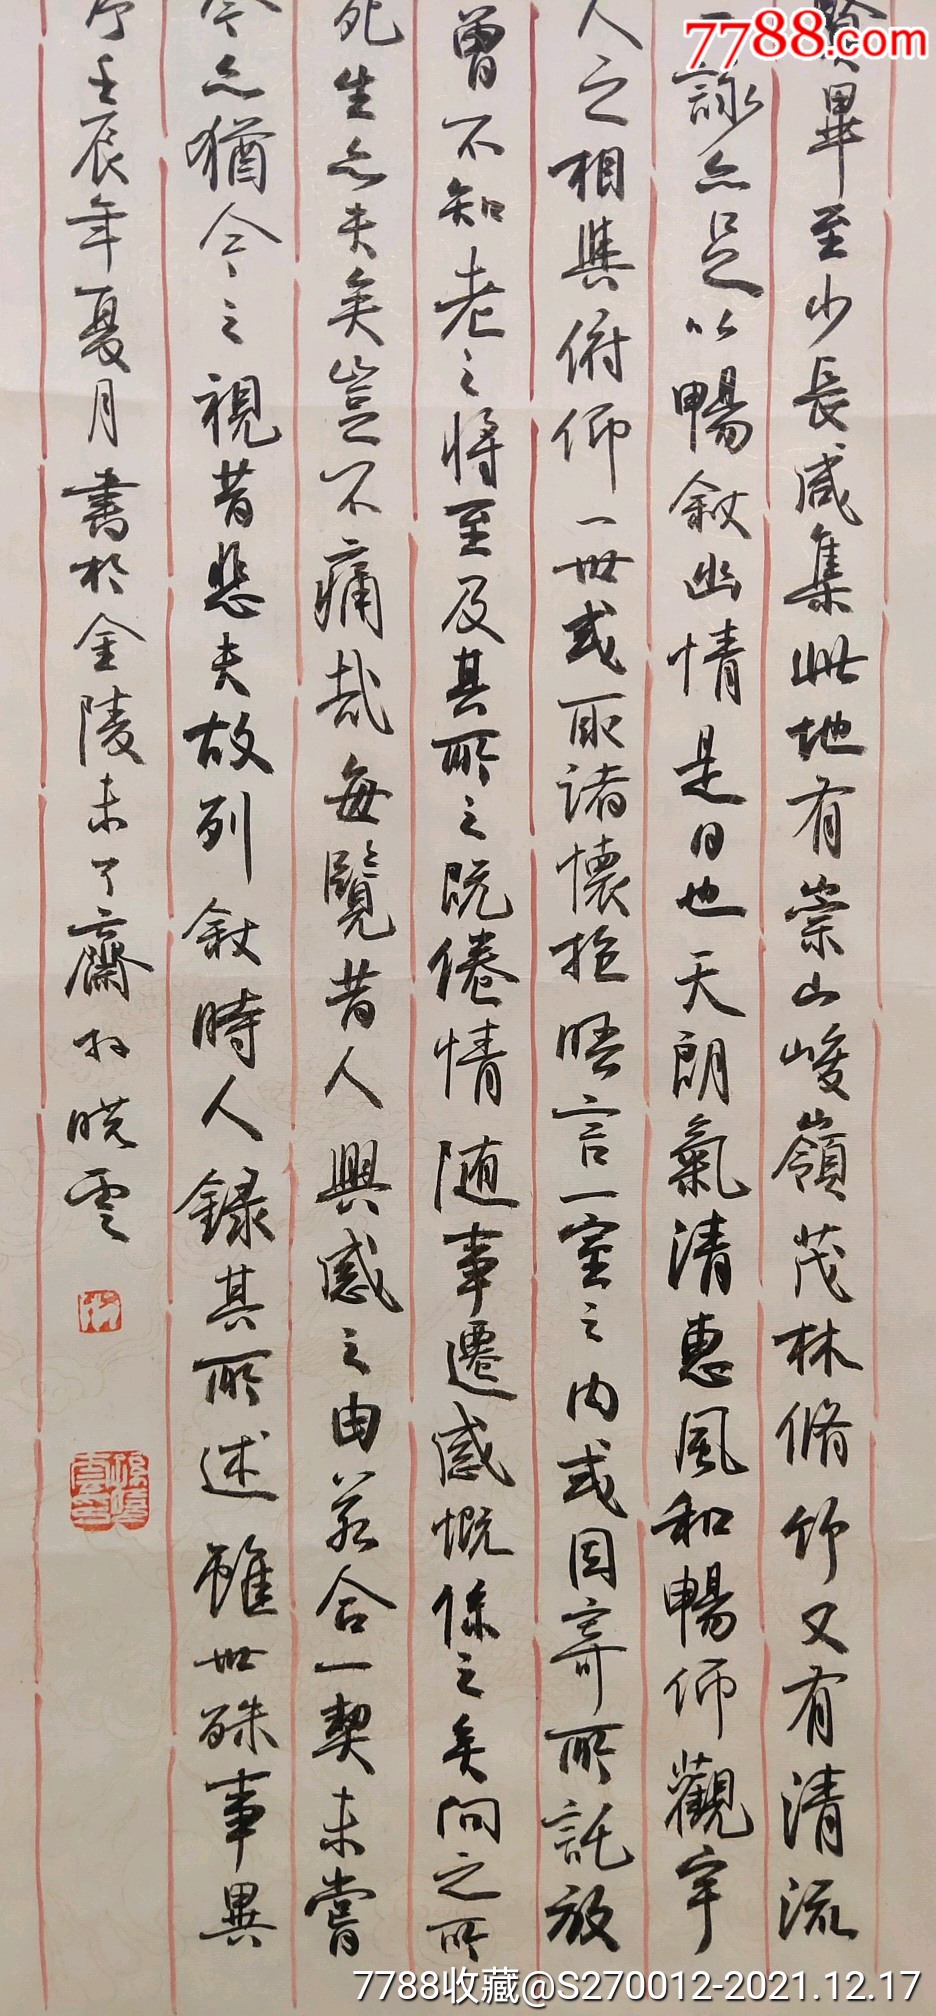 7788.com
賢畢至少長咸集此地有崇山峻嶺茂林脩竹又有清流
一詠亦足以暢敘幽情是日也天朗氣清惠風和暢仰觀宇
人之相與俯仰一世或取諸懷抱晤言一室之內或因寄所託放
曾不知老之將至及其所之既倦情隨事遷感慨係之矣向之所
死生亦大矣豈不痛哉每覽昔人興感之由若合一契未嘗
今亦猶今之視昔悲夫故列敘時人錄其所述雖世殊事異
序壬辰年夏月書於金陵未了齋 曉雲
7788收藏@S270012-2021.12.17